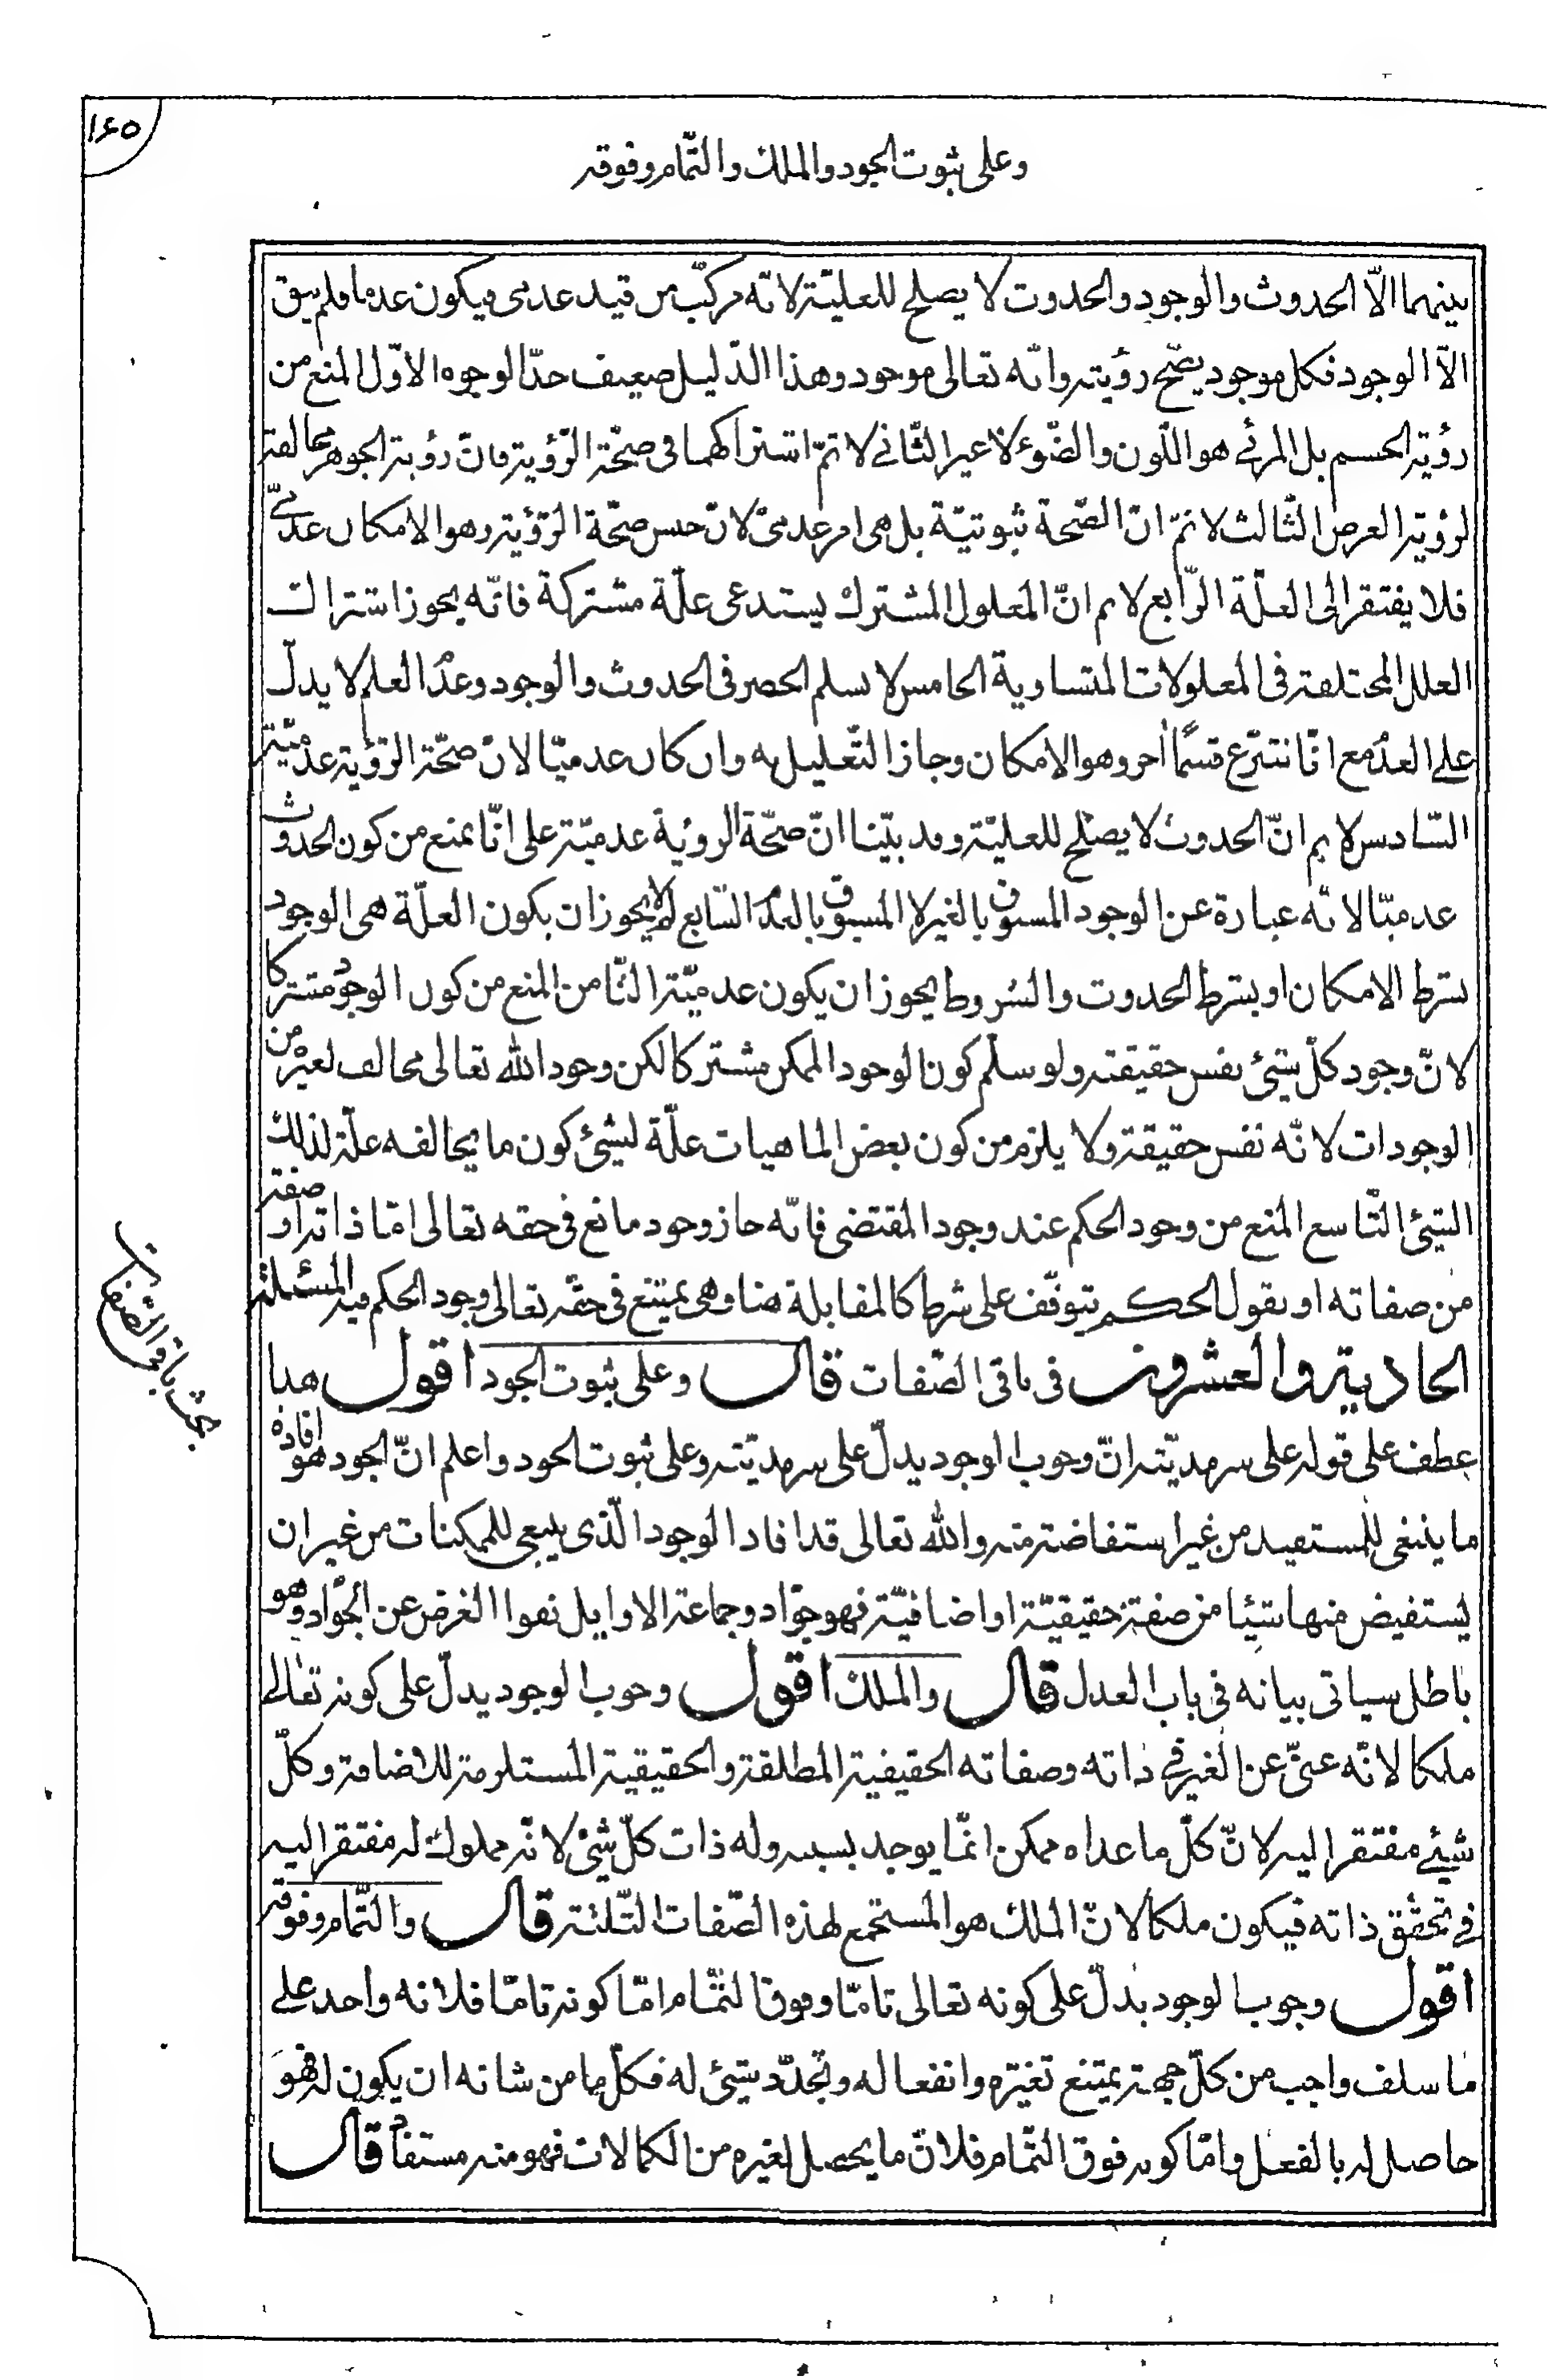 ١٦٥
وعلى ثبوت الجود والملك والتّمام وفوقه
بينهما الّا الحدوث والوجود والحدوث لا يصلح للعليّة لانّه مركّب من قيد عدمى فيكون عدما فلم يبق
الّا الوجود فكل موجود يصّح رؤيته وانّه تعالى موجود وهذا الدّليل ضعيف جدّا لوجوه الاوّل المنع من
رؤية الجسم بل المرئى هو اللّون والضّوء لا غير الثّانى لا نمّ اشتراكهما فى صحّة الرّؤية فانّ رؤية الجوهر مخالفة
لرؤية العرض الثّالث لا نمّ انّ الصّحة ثبوتيّة بل هى امر عدمىّ لانّ جنس صحّة الرّؤية وهو الامكان عدمىّ
فلا يفتقر الى العلّة الرّابع لا نم انّ المعلول المشترك يستدعى علّة مشتركة فانّه يجوز اشتراك
العلل المختلفة فى المعلولات المتساوية الخامس لا نسلم الحصر فى الحدوث والوجود وعدم العلم لا يدلّ
على العدم مع انّا نتبرّع قسمًا اخر وهو الامكان وجاز التّعليل به وان كان عدميّا لانّ صحّة الرّؤية عدميّة
السّادس لا نم انّ الحدوث لا يصلح للعليّة وقد بيّنا انّ صحّة الرؤية عدميّة على انّا نمنع من كون الحدوث
عدميّا لانّه عبارة عن الوجود المسبوق بالغير لا المسبوق بالعدم السّابع لم لا يجوز ان يكون العلّة هى الوجود
بشرط الامكان او بشرط الحدوث والشروط يجوز ان يكون عدميّة الثّامن المنع من كون الوجود مشتركا
لانّ وجود كلّ شىء نفس حقيقته ولو سلّم كون الوجود الممكن مشتركا لكن وجود الله تعالى مخالف لغيره من
الوجودات لانّه نفس حقيقة ولا يلزم من كون بعض الماهيات علّة لشىء كون ما يخالفه علّة لذلك
الشىء التّاسع المنع من وجود الحكم عند وجود المقتضى فانّه جاز وجود مانع فى حقه تعالى امّا ذاته او صفة
من صفاته او نقول الحكم يتوقّف على شرط كالمقابلة هنا وهى يمتنع فى حقّه تعالى وجود الحكم فيه المسئلة
الحادية والعشرون فى باقى الصّفات قال وعلى ثبوت الجود اقول هذا
عطف على قوله على سرمديّته انّ وجوب الوجود يدلّ على سرمديّته وعلى ثبوت الجود واعلم انّ الجود هو افادة
ما ينبغى للمستفيد من غير استفاضة منه والله تعالى قد افاد الوجود الّذى ينبغى للممكنات من غير ان
يستفيض منها شيئا من صفة حقيقيّة او اضافيّة فهو جوّاد وجماعة الاوايل نفوا الغرض عن الجّواد وهو
باطل سياتى بيانه فى باب العدل قال والملك اقول وجوب الوجود يدلّ على كونه تعالى
ملكا لانّه غنىّ عن الغير فى ذاته وصفاته الحقيقية المطلقة والحقيقية المستلزمة للاضافة وكلّ
شىء مفتقر اليه لانّ كلّ ما عداه ممكن انّما يوجد بسببه وله ذات كلّ شىء لانّه مملوك له مفتقر اليه
فى تحقّق ذاته فيكون ملكا لانّ الملك هو المستجمع لهذه الصّفات الثّلثة قال والتّمام وفوقه
اقول وجوب الوجود يدلّ على كونه تعالى تامّا وفوق التّمام امّا كونه تامّا فلانه واحد على
ما سلف واجب من كلّ جهة يمتنع تغيّره وانفعاله وتجدّد شىء له فكلّ ما من شانه ان يكون له فهو
حاصل له بالفعل وامّا كونه فوق التّمام فلانّ ما يحصل لغيره من الكمالات فهو منه مستفاد قال
بحث باقى الصّفات